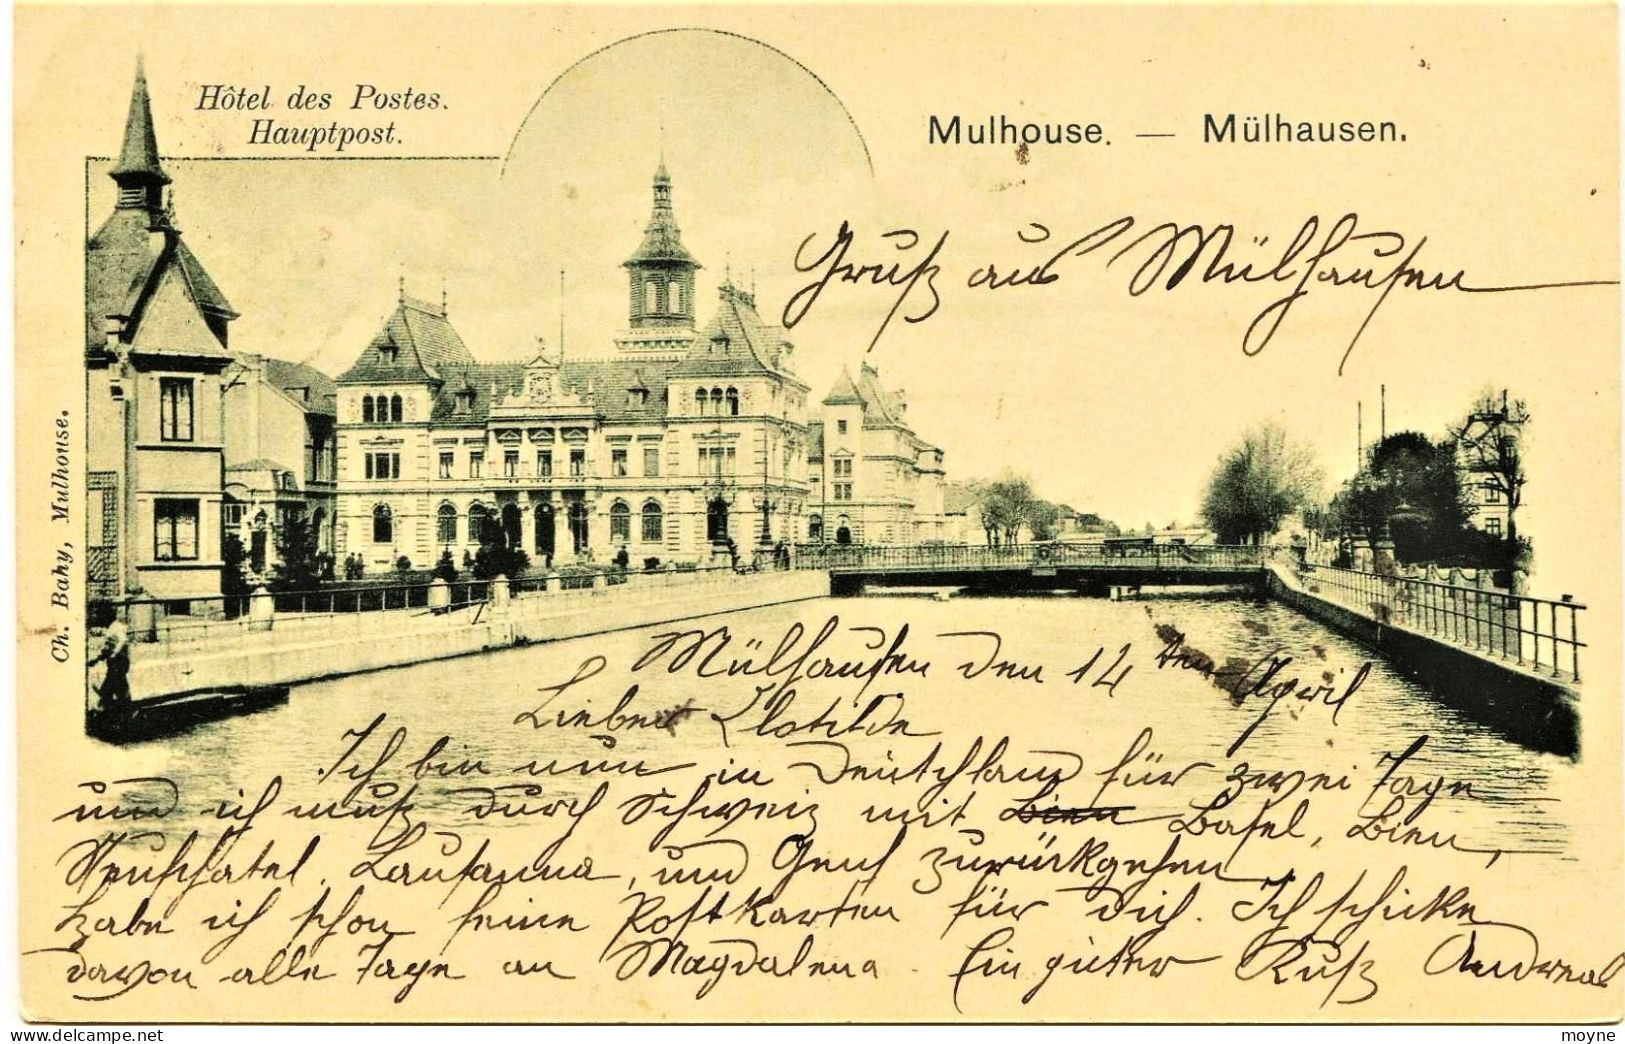 Hôtel des Postes.
Hauptpost.
Mulhouse. — Mülhausen.
Gruß aus Mülhausen
Ch. Bahy, Mulhouse.
Mülhausen den 14ten April
Liebe Clotilde
Ich bin nun in Deutchland für zwei Tage
und ich muß durch Schweiz mit Bien Basel, Bien,
Neuschatel, Lausanna, und Genf zurückgehen
habe ich schon seine Postkarten für dich. Ich schicke
davon alle Tage an Magdalena. Ein guter Kuß Andreas
moyne